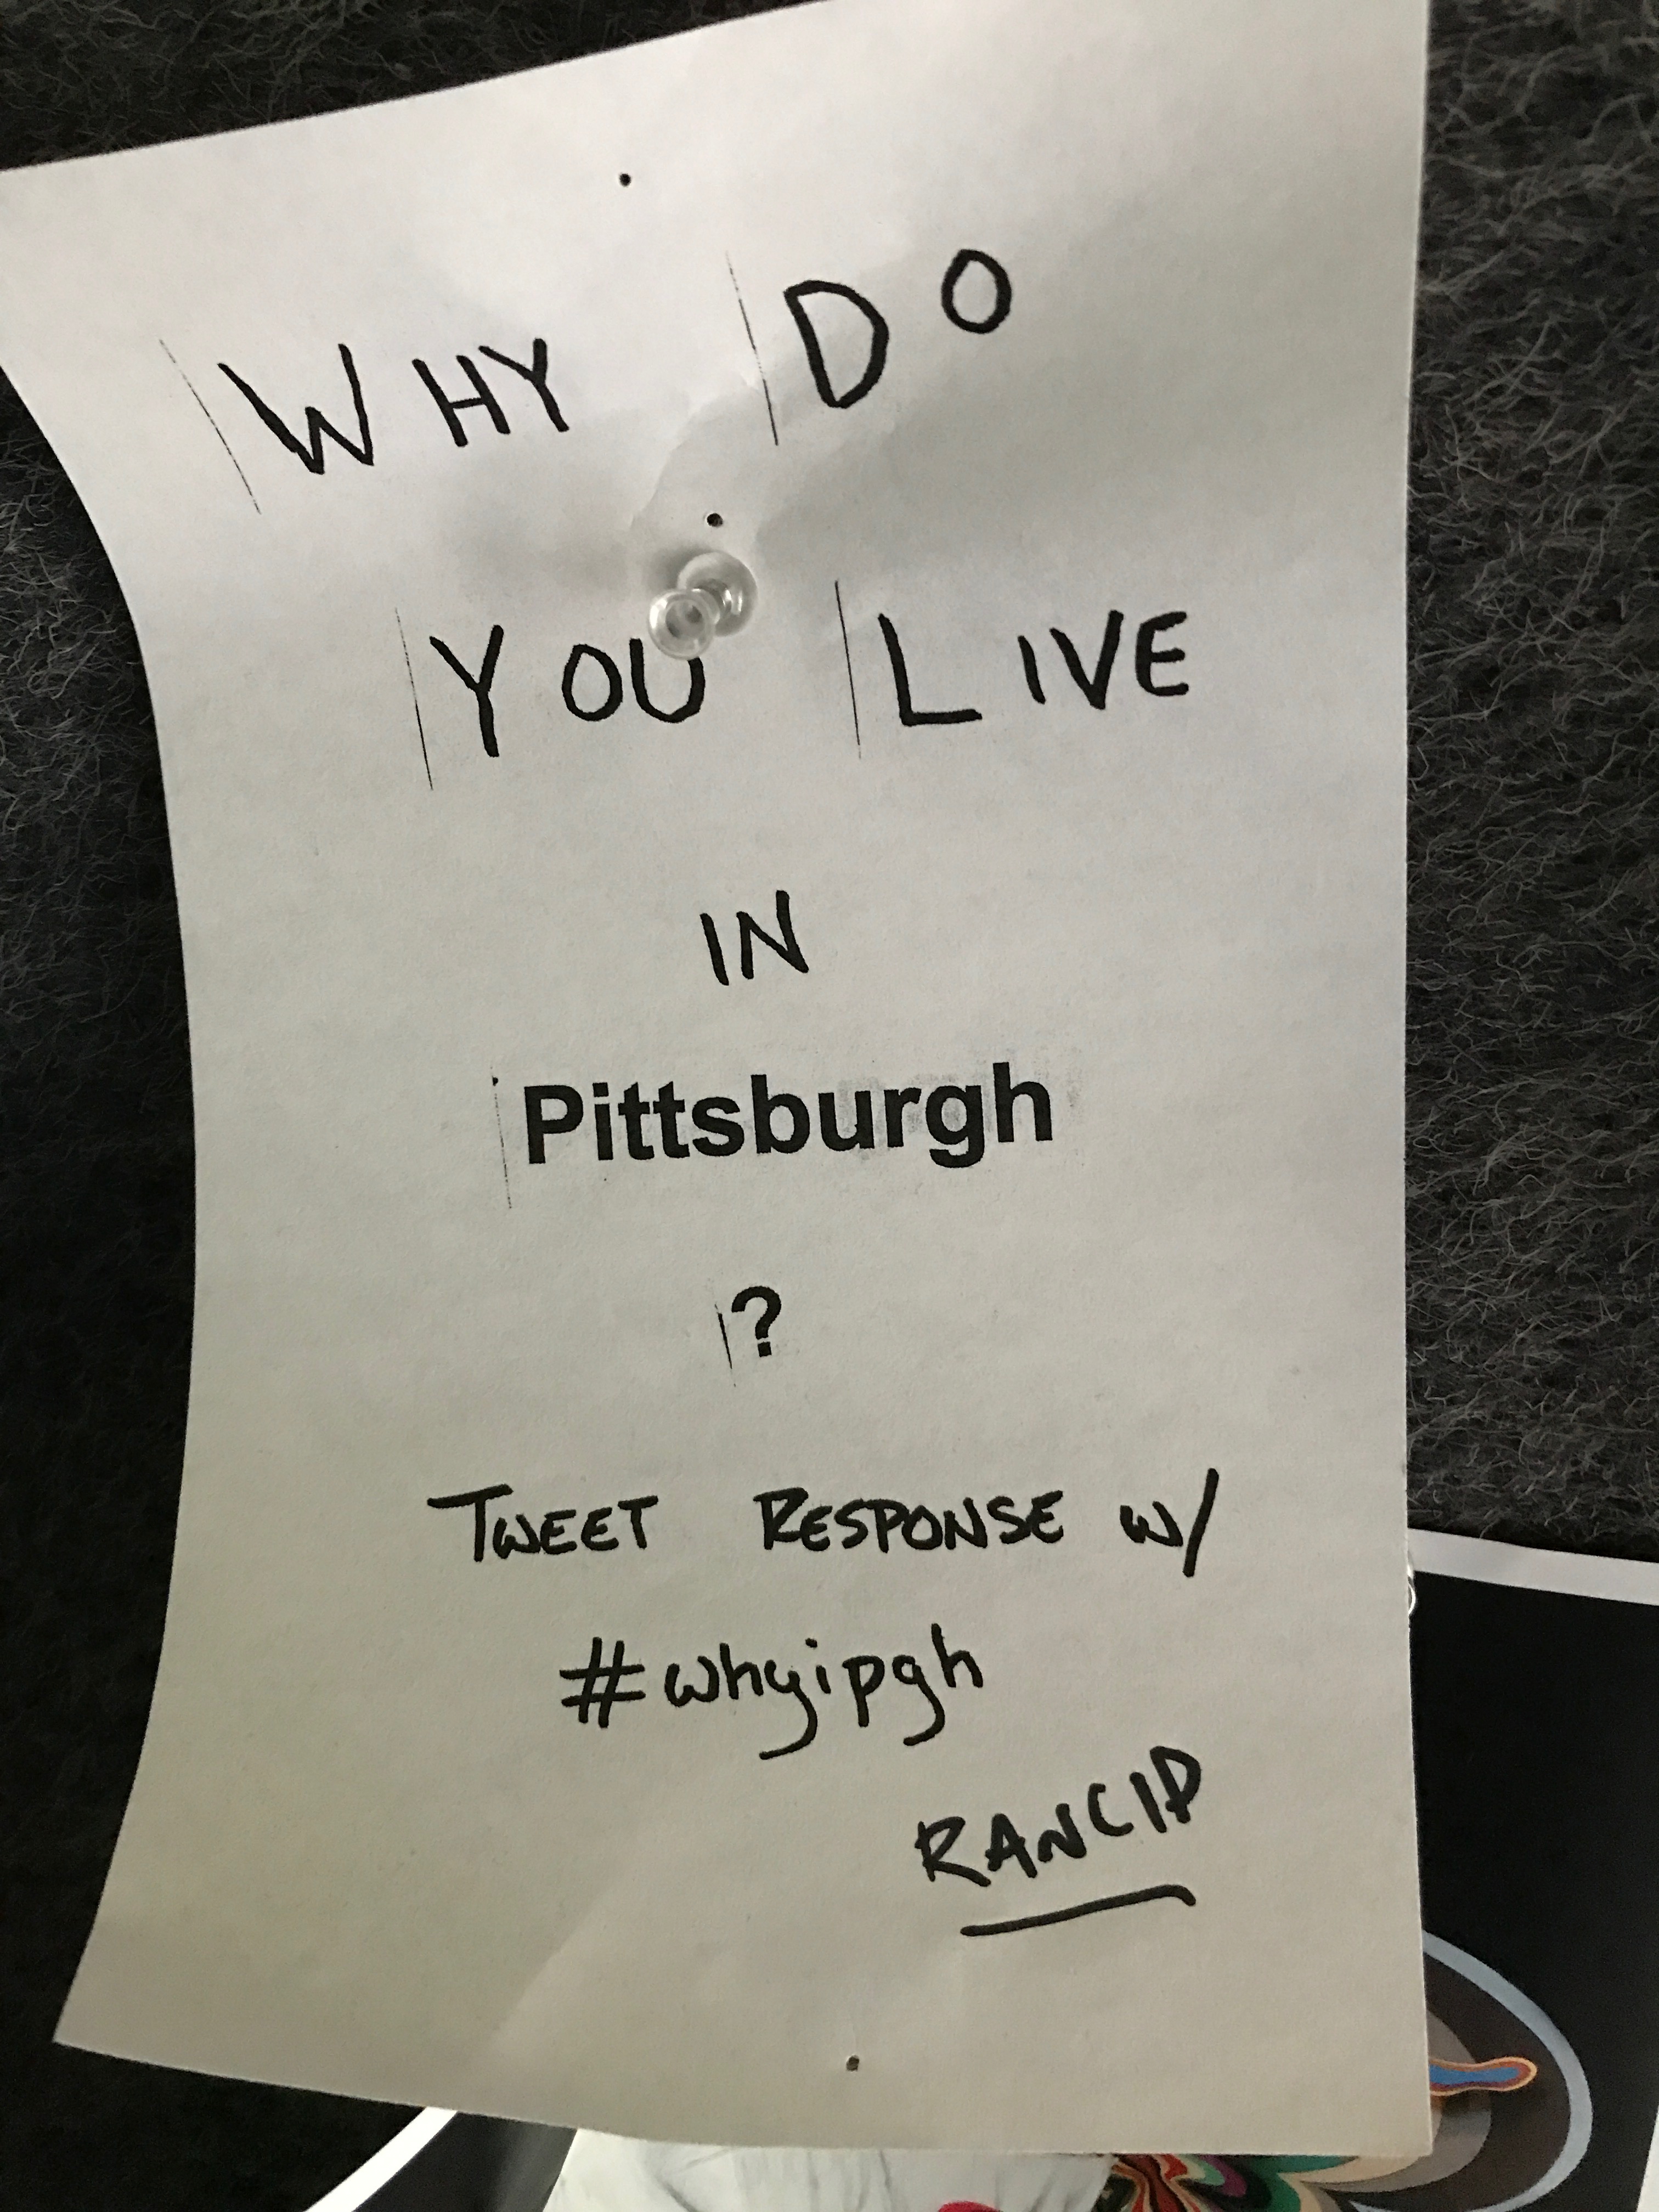 WHY DO
YOU LIVE
IN
Pittsburgh
?
TWEET RESPONSE W/
#whyipgh
RANCID